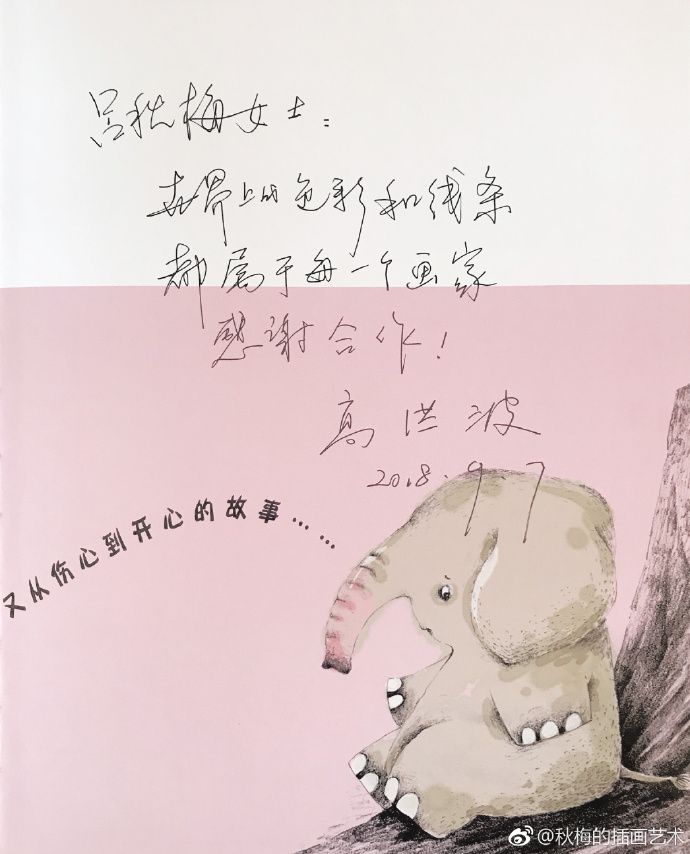 吕秋梅女士：
世界上的色彩和线条
都属于每一个画家
感谢合作！
高洪波
2018.9.7
又从伤心到开心的故事……
@秋梅的插画艺术